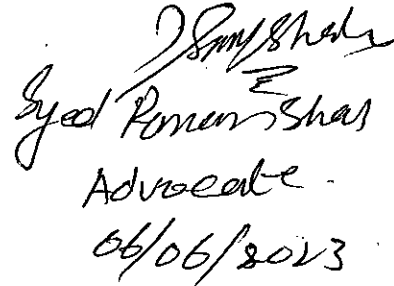 Syed Roman Shah
Advocate.
06/06/2023